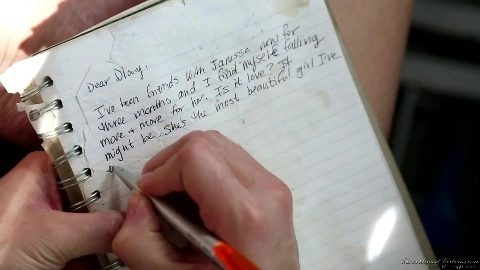 Dear Diary,
I've been friends with Janessa now for
three months, and I find myself falling
more + more for her. Is it love? It
might be. She's the most beautiful girl I've
e